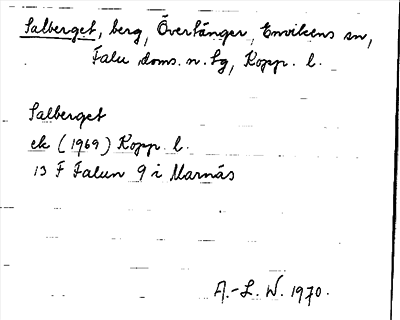 Salberget, berg, Övertänger, Envikens sn,
Falu doms. n. tg, Kopp. l.
Salberget
ek (1969) Kopp. l.
13 F Falun 9 i Marnäs
A.-L. W. 1970.